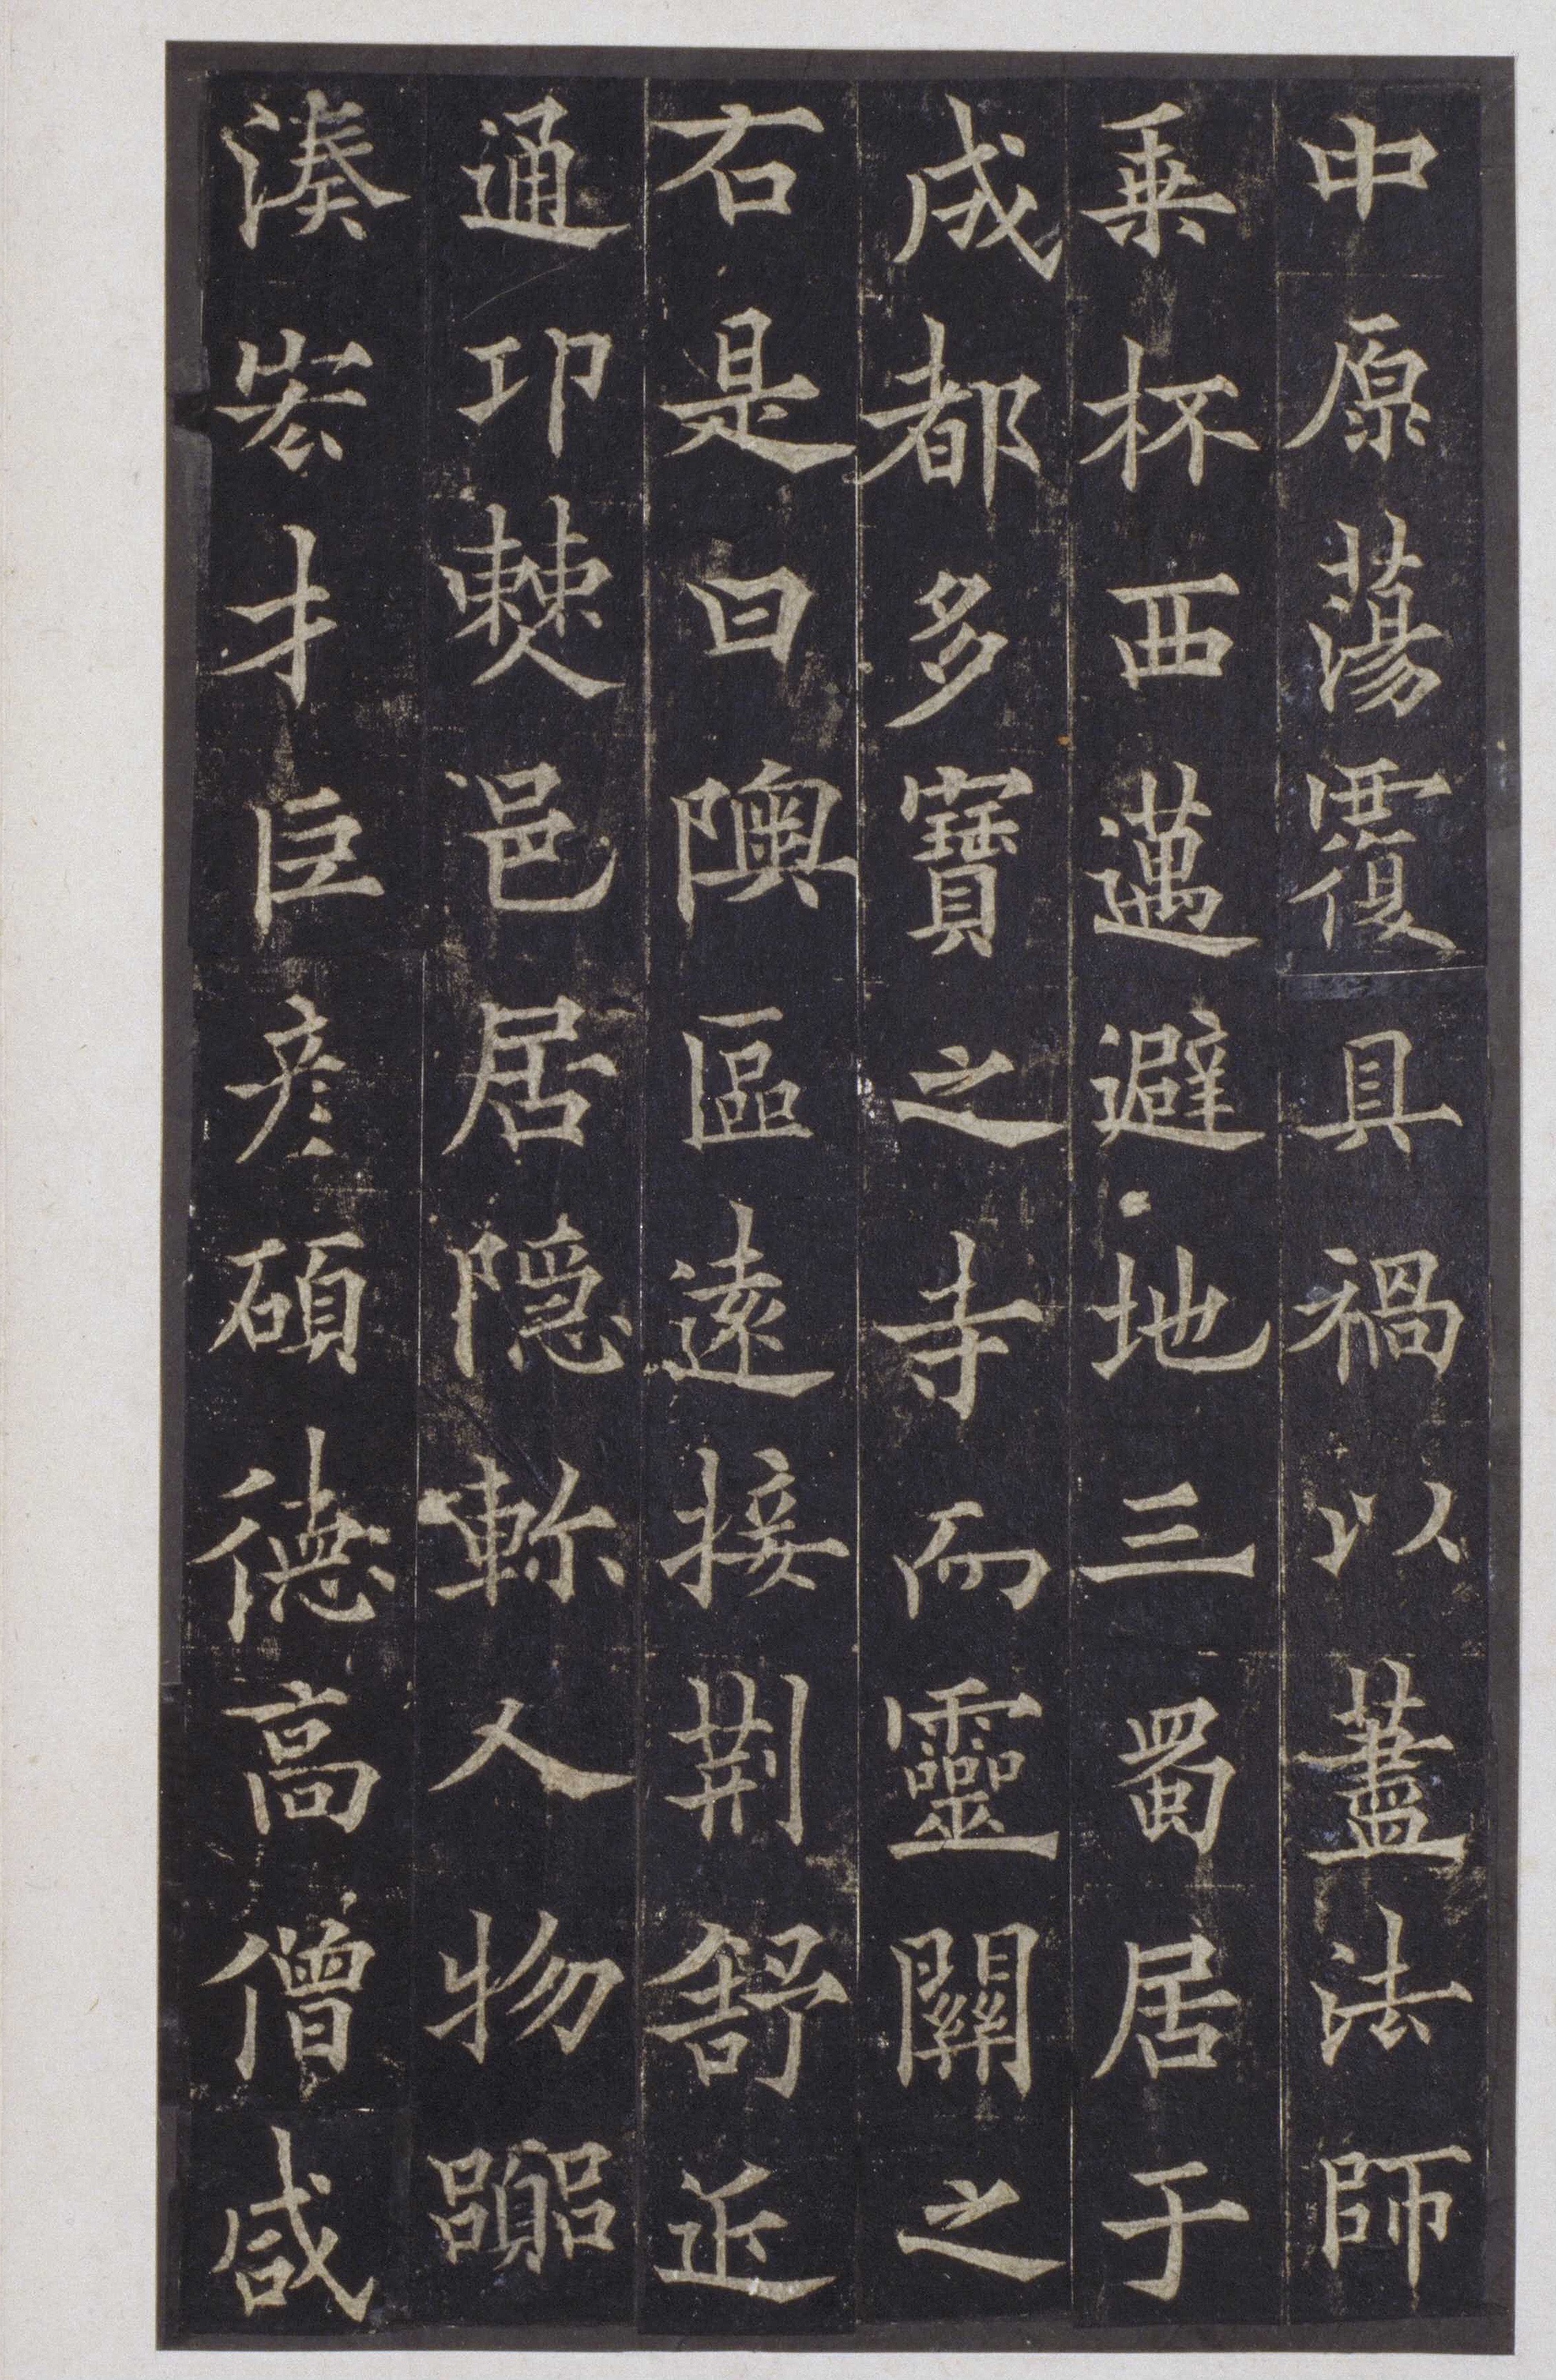 中原蕩覆具禍以藎法師
乗杯西邁避地三蜀居于
成都多寶之寺而靈關之
右是曰隩區遠接荊舒近
通邛僰邑居隱軫人物嚻
湊宏才巨彦碩德高僧咸